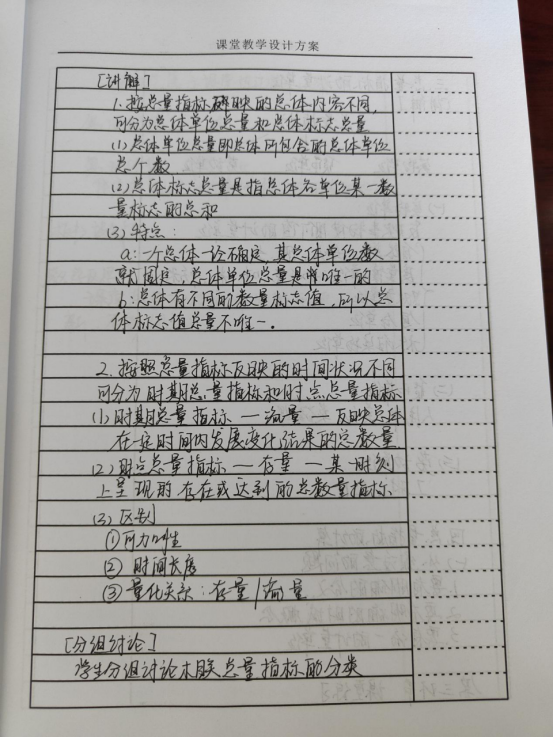 课堂教学设计方案
[讲解]
1. 按总量指标反映的总体内容不同,
可分为总体单位总量和总体标志总量
(1) 总体单位总量即总体所包含的总体单位
总个数
(2) 总体标志总量是指总体各单位某一数
量标志的总和
(3) 特点:
a: 一个总体一论确定,其总体单位数
就固定,总体单位总量是唯一的
b: 总体有不同的数量标志值,所以总
体标志值总量不唯一。
2. 按照总量指标反映的时间状况不同
可分为时期总量指标和时点总量指标
(1) 时期总量指标 — 流量 — 反映总体
在一定时间内发展变化结果的总数量
(2) 时点总量指标 — 存量 — 某一时刻
上呈现的存在或达到的总数量指标
(3) 区别
① 可加性
② 时间长度
③ 量化关系: 存量/流量
[分组讨论]
学生分组讨论 总量指标的分类